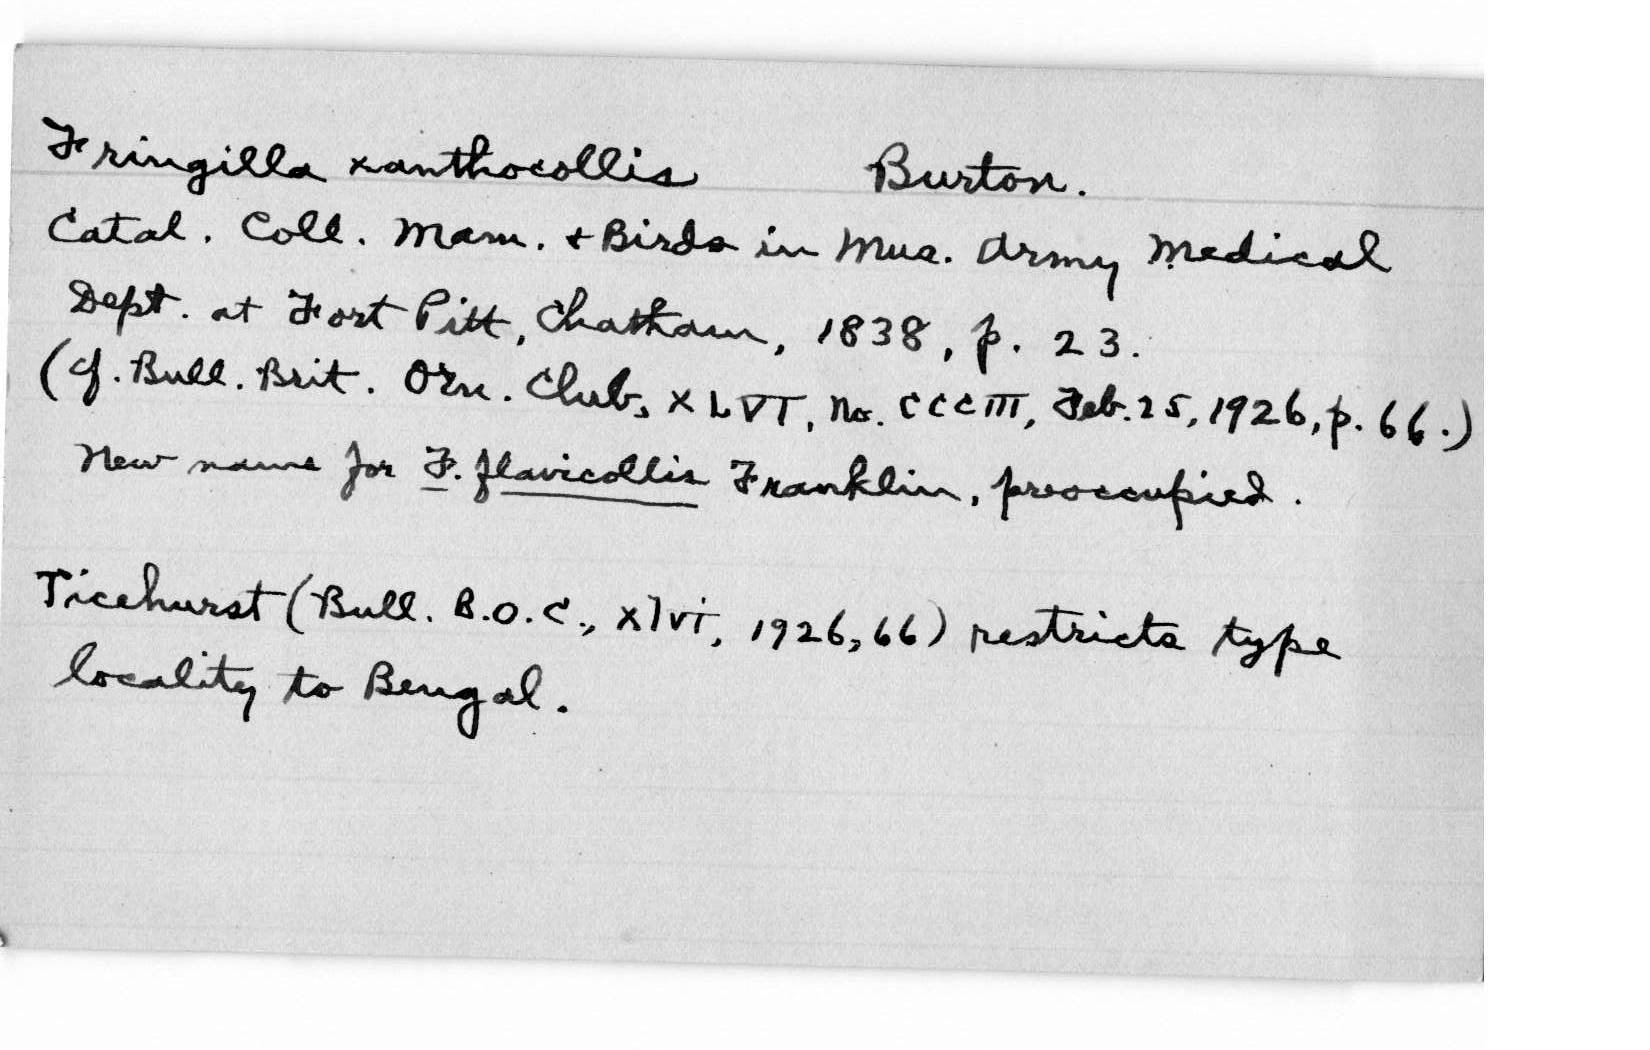 Fringilla xanthocollis Burton.
Catal. Coll. Mam. & Birds in Mus. Army Medical
Dept. at Fort Pitt, Chatham, 1838, p. 23.
(cf. Bull. Brit. Orn. Club, XLVI, No. CCCIII, Feb. 25, 1926, p. 66.)
New name for F. flavicollis Franklin, preoccupied.
Ticehurst (Bull. B.O.C., xlvi, 1926, 66) restricts type
locality to Bengal.